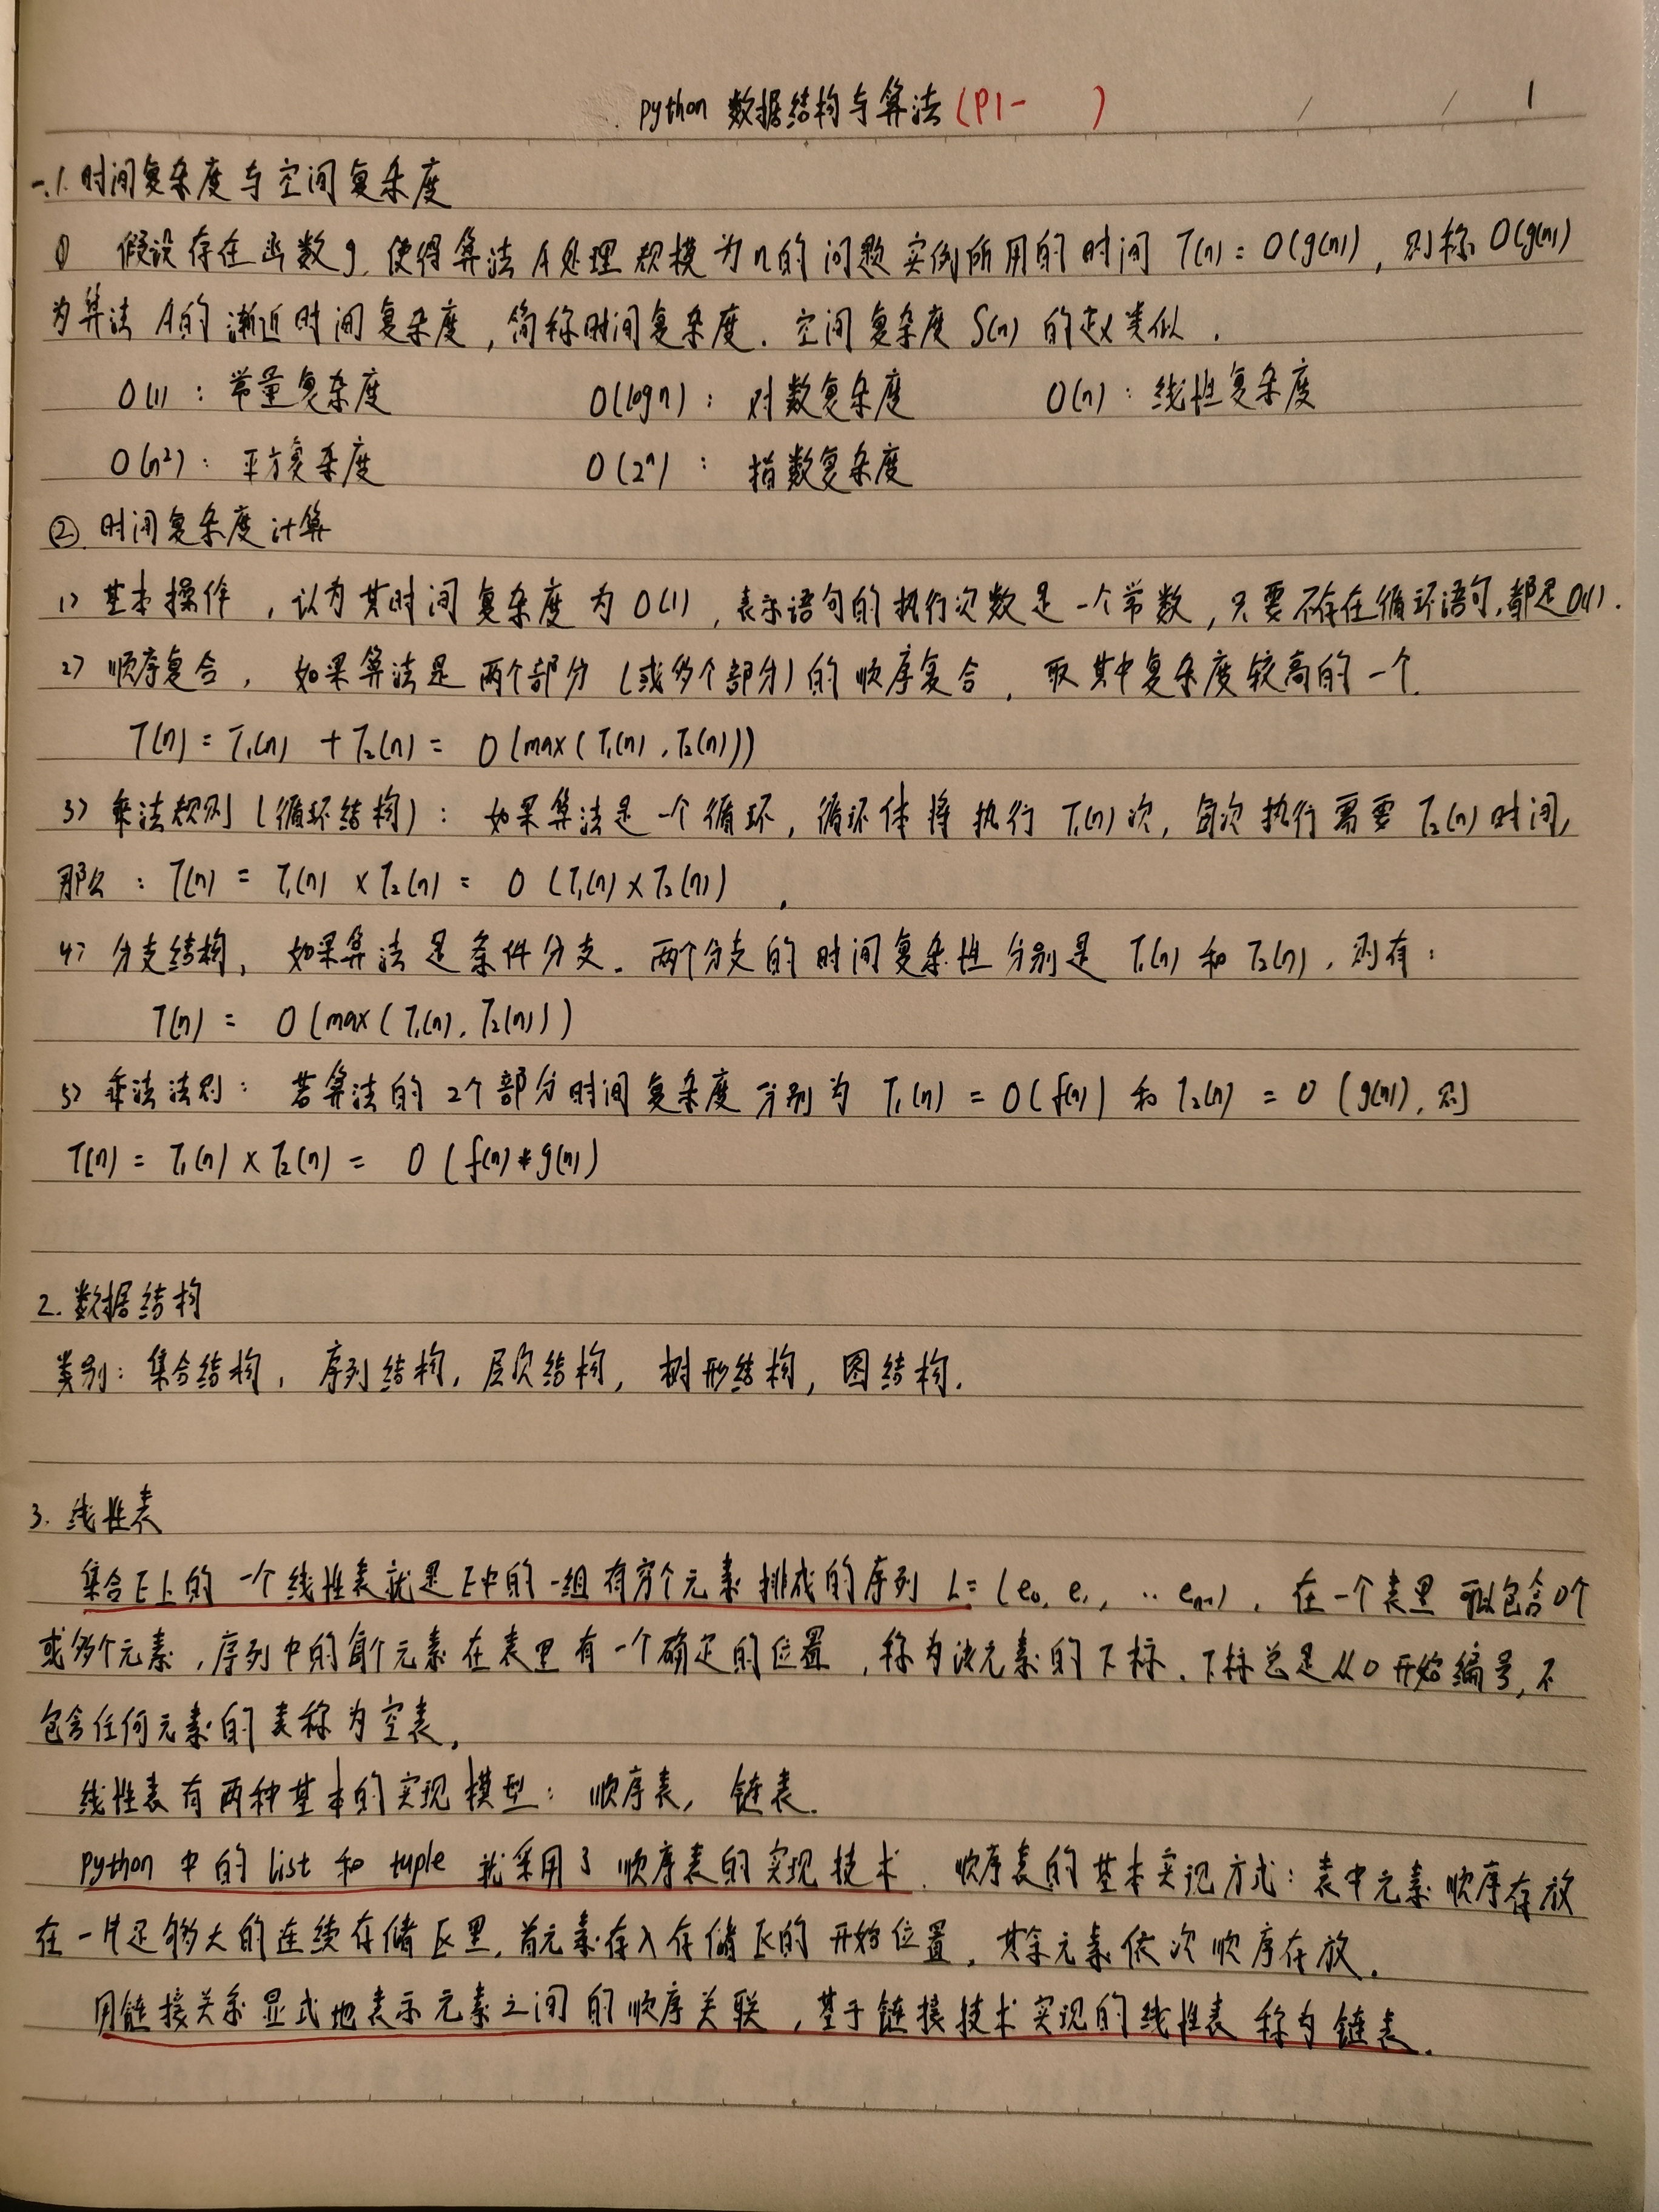 python 数据结构与算法(P1- ) / / 1
一.1.时间复杂度与空间复杂度
① 假设存在函数g,使得算法A处理规模为n的问题实例所用的时间 T(n) = O(g(n)),则称 O(g(n))
为算法A的渐近时间复杂度,简称时间复杂度.空间复杂度 S(n) 的定义类似.
O(1):常量复杂度 O(logn):对数复杂度 O(n):线性复杂度
O(n²):平方复杂度 O(2ⁿ):指数复杂度
②.时间复杂度计算
1> 基本操作,认为其时间复杂度为O(1),表示语句的执行次数是一个常数,只要不存在循环语句,都是O(1).
2> 顺序复合,如果算法是两个部分(或多个部分)的顺序复合,取其中复杂度较高的一个.
T(n) = T₁(n) + T₂(n) = O(max(T₁(n),T₂(n)))
3> 乘法规则(循环结构):如果算法是一个循环,循环体将执行 T₁(n)次,每次执行需要 T₂(n)时间,
那么:T(n) = T₁(n) × T₂(n) = O(T₁(n)×T₂(n)).
4> 分支结构,如果算法是条件分支.两个分支的时间复杂性分别是 T₁(n) 和 T₂(n),则有:
T(n) = O(max(T₁(n),T₂(n)))
5> 乘法法则:若算法的2个部分时间复杂度分别为 T₁(n) = O(f(n)) 和 T₂(n) = O(g(n)),则
T(n) = T₁(n) × T₂(n) = O(f(n)*g(n))
2.数据结构
类别:集合结构,序列结构,层次结构,树形结构,图结构.
3.线性表
集合E上的一个线性表就是E中的一组有穷个元素排成的序列 L=(e₀,e₁,‥eₙ₋₁),在一个表里可以包含0个
或多个元素,序列中的每个元素在表里有一个确定的位置,称为该元素的下标.下标总是从0开始编号,不
包含任何元素的表称为空表.
线性表有两种基本的实现模型:顺序表,链表.
python 中的 list 和 tuple 就采用了顺序表的实现技术.顺序表的基本实现方式:表中元素顺序存放
在一片足够大的连续存储区里,首元素存入存储区的开始位置,其余元素依次顺序存放.
用链接关系显式地表示元素之间的顺序关联,基于链接技术实现的线性表称为链表.